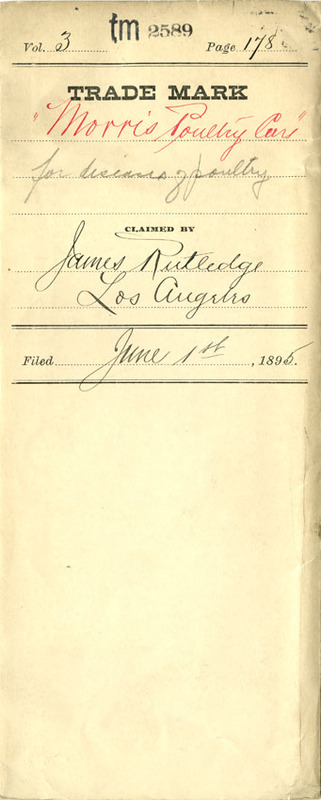 tm 2589
Vol. 3 Page 178
TRADE MARK
"Morris Poultry Cure"
for diseases of poultry
CLAIMED BY
James Rutledge
Los Angeles
Filed June 1st, 1895.